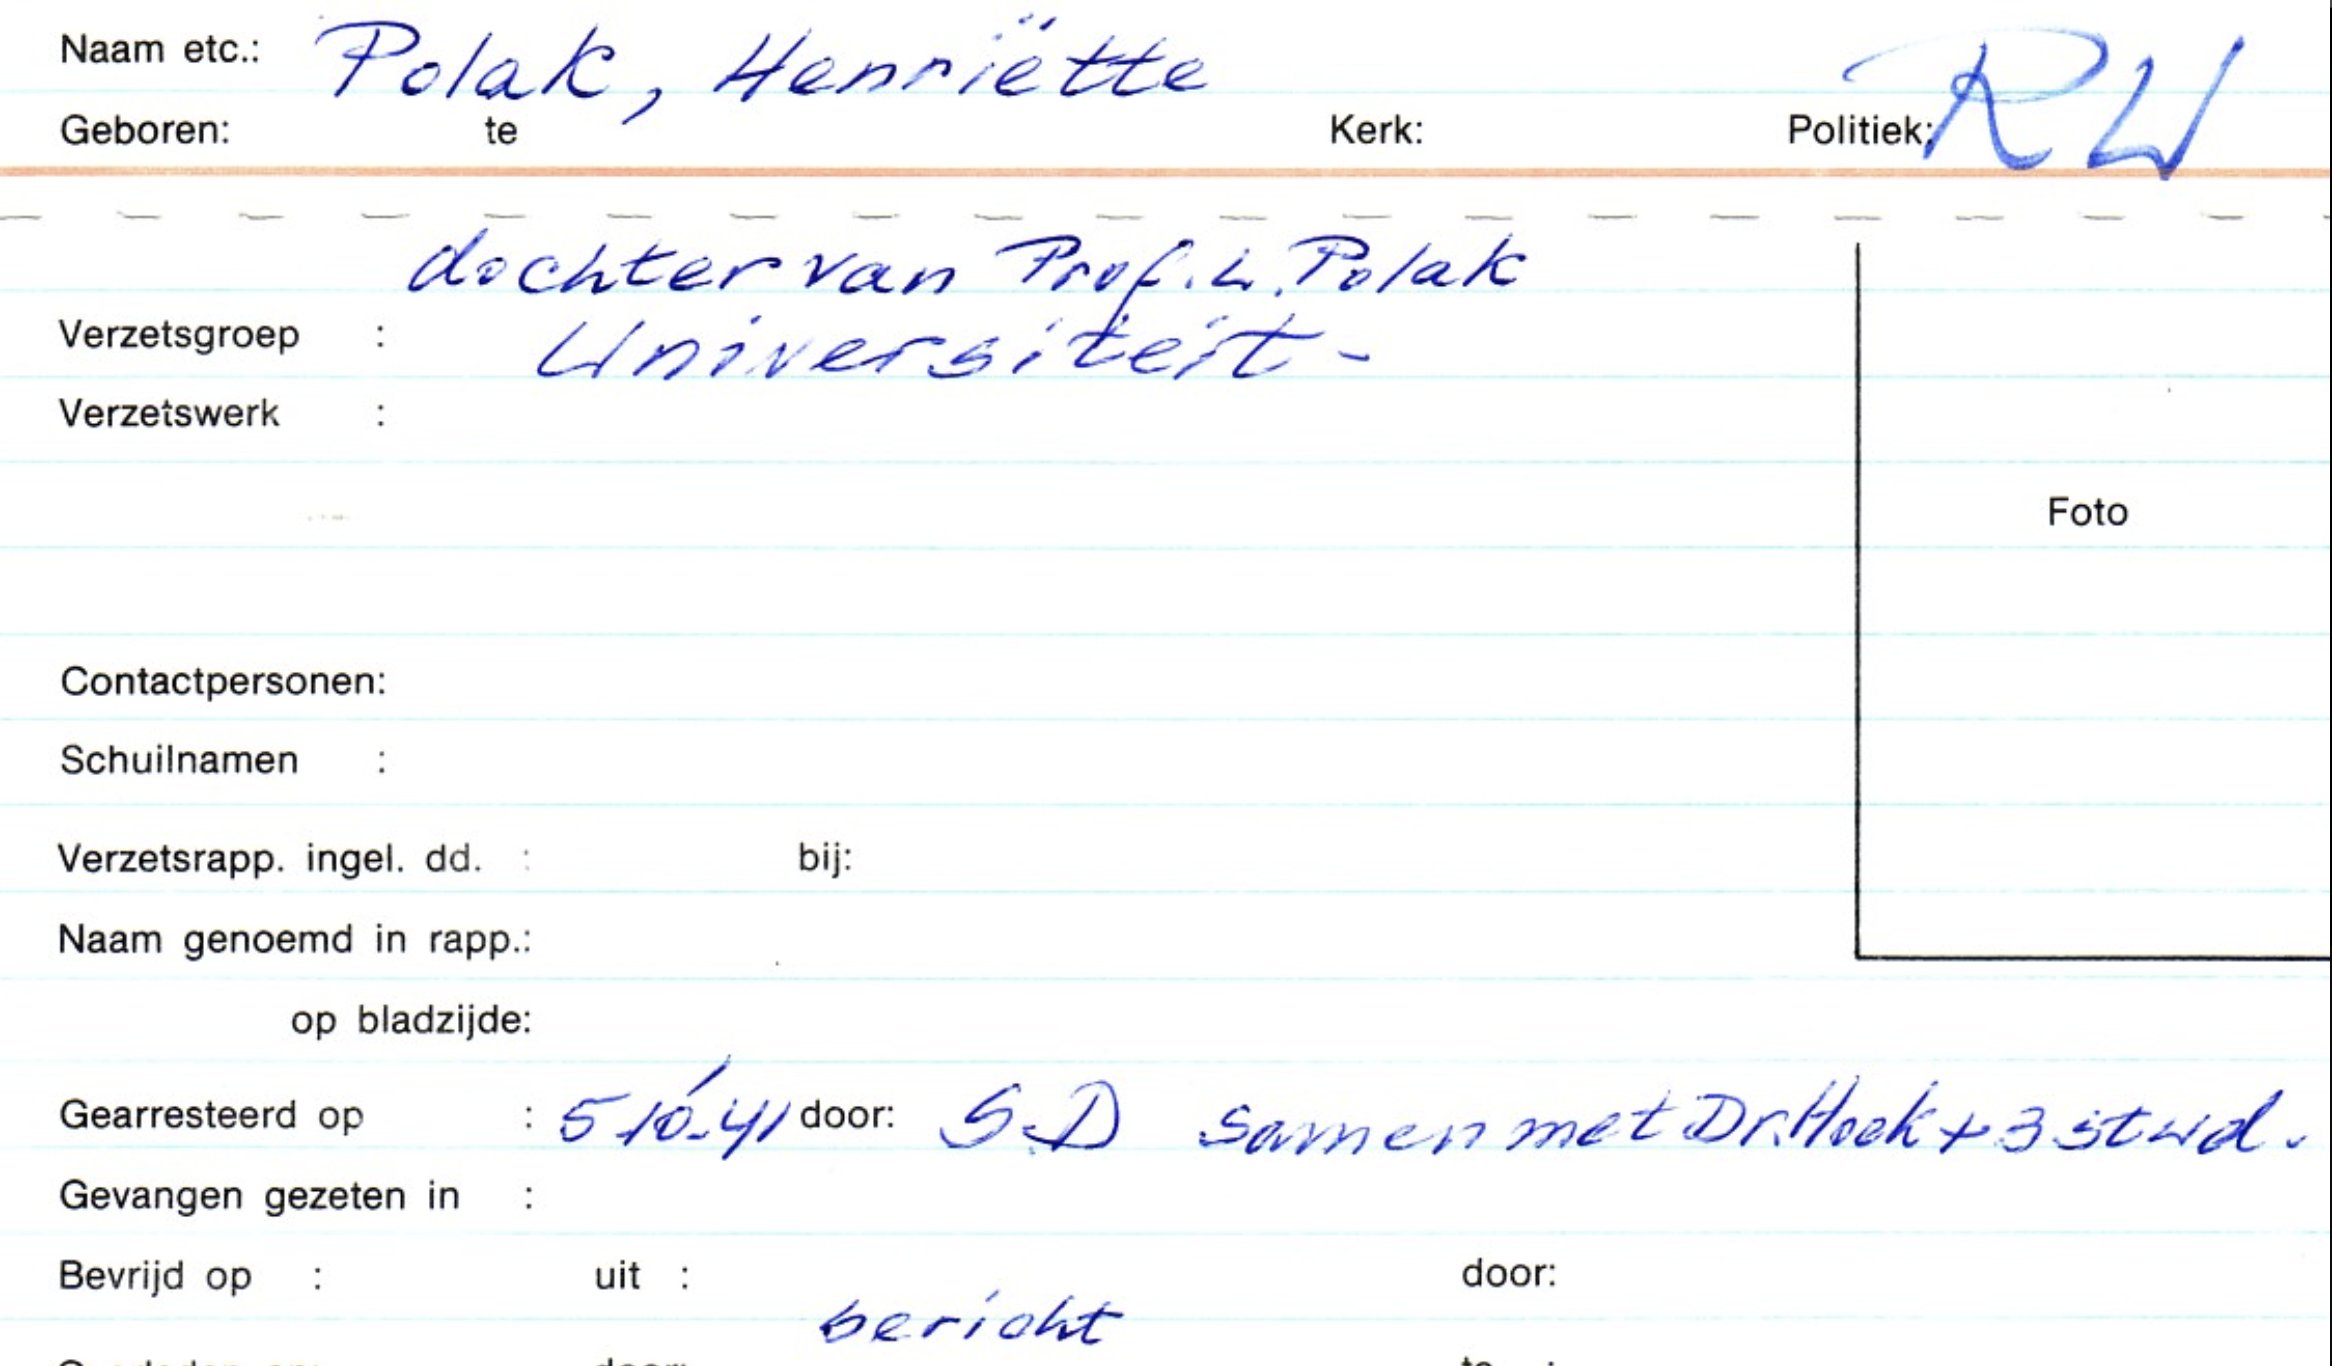 Naam etc.: Polak, Henriëtte
Geboren: te Kerk: Politiek: RW
dochter van Prof. L. Polak
Verzetsgroep : Universiteit -
Verzetswerk :
Foto
Contactpersonen:
Schuilnamen :
Verzetsrapp. ingel. dd. : bij:
Naam genoemd in rapp.:
op bladzijde:
Gearresteerd op : 5-10-41 door: S.D samen met Dr. Hoek + 3 stud.
Gevangen gezeten in :
Bevrijd op : uit : door:
bericht